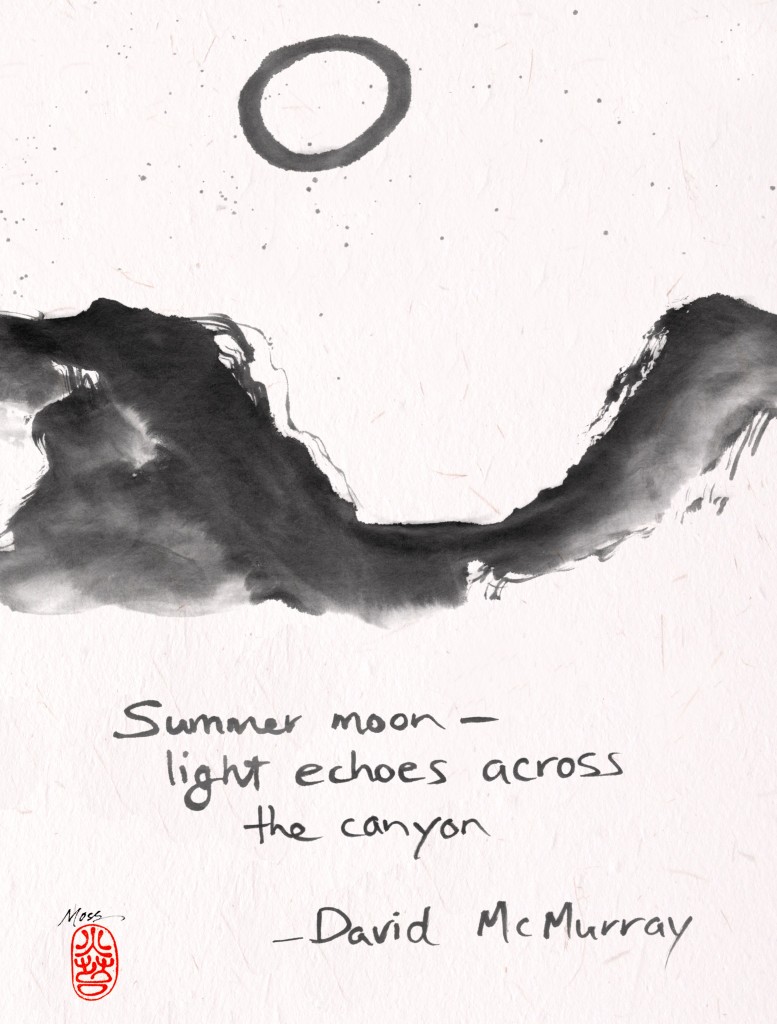 Summer moon —
light echoes across
the canyon
—David McMurray
Moss